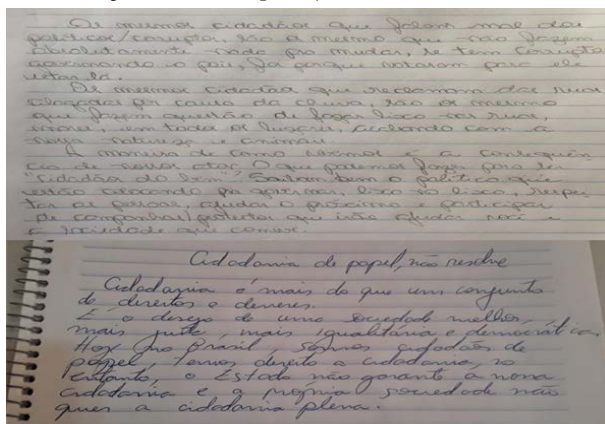 Os mesmos cidadãos que falam mal dos
políticos/corruptos, são os mesmo que não fazem
absolutamente nada pra mudar, se tem corrupto
governando o país, foi porque votaram para ele
estar lá.
Os mesmos cidadãos que reclamam das ruas
alagadas por causa da chuva, são os mesmo
que fazem questão de jogar lixo nas ruas,
em todos os lugares, acabando com a
nossa natureza e animais.
A maneira de como vivemos é a consequên
cia de nossos atos. O que podemos fazer para ser
"Cidadãos do bem" Saibam bem o político que
estão colocando pra governar, lixo no lixo, respei
tar as pessoas, ajudar o próximo e participar
de campanhas/protestos que irão ajudar você e
a sociedade que comove.
Cidadania de papel, não resolve
Cidadania é mais do que um conjunto
de direitos e deveres.
É o desejo de uma sociedade melhor,
mais justa, mais igualitária e democrática.
Hoje no Brasil, somos cidadãos de
papel, temos direito a cidadania, no
entanto, o Estado não garante a nossa
cidadania e a própria sociedade não
quer a cidadania plena.